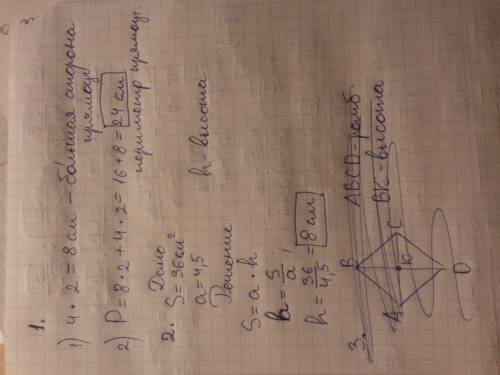 1.
1) 4 · 2 = 8 см – большая сторона
прямоуг.
2) P = 8 · 2 + 4 · 2 = 16 + 8 = 24 см
периметр прямоуг.
2. Дано
S = 36 см²
a = 4,5
h – высота
Решение
S = a · h
h = S/a
h = 36/4,5 = 8 см
3. ABCD – ромб
BK – высота
B
A
C
K
D